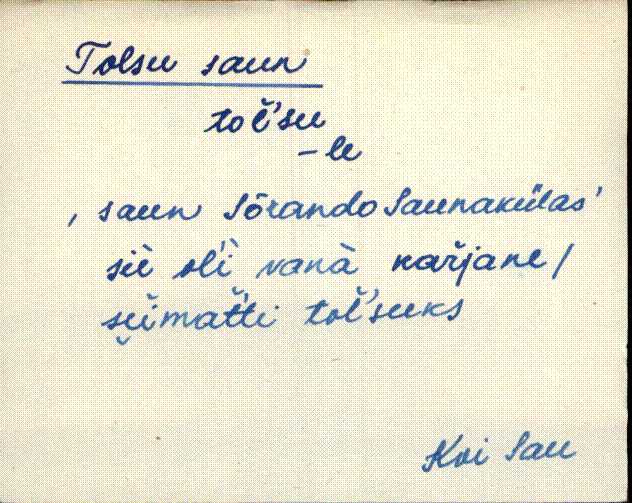 Tolsu saun
tol̆'su
– le
, saun Sõrando Saunakülas'
siè ol'ì vanà kar̆jane /
sǜimat̆'ti tol̆'suks
Koi Sau